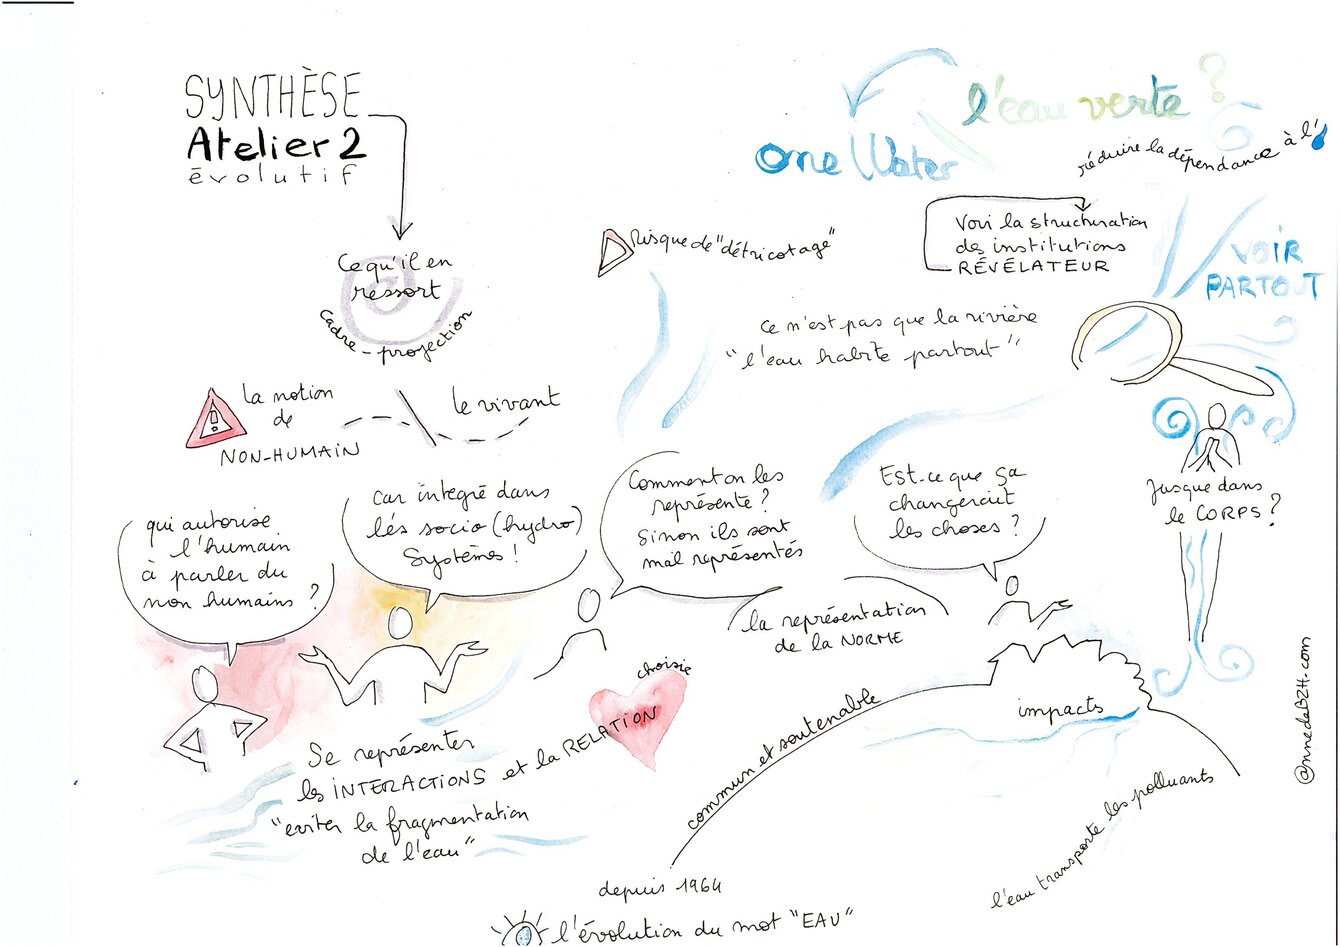 SYNTHÈSE
Atelier 2
évolutif
Ce qu'il en
ressort
cadre - projection
la notion
de
NON-HUMAIN
le vivant
qui autorise
l'humain
à parler du
non humains ?
car integré dans
lés socio (hydro)
Systèmes !
Comment on les
représente ?
Sinon ils sont
mal représentés
Est-ce que ça
changerait
les choses ?
la représentation
de la NORME
Risque de "détricotage"
one Water
l'eau verte ?
réduire la dépendance à l'
Voir la structuration
des institutions
RÉVÉLATEUR
VOIR
PARTOUT
ce n'est pas que la rivière
"l'eau habite partout"
Jusque dans
le CORPS ?
Se représenter
les INTERACTIONS et la RELATION
choisie
"eviter la fragmentation
de l'eau"
commun et soutenable
impacts
l'eau transporte les polluants
depuis 1964
l'évolution du mot "EAU"
@nnedeBZH.com